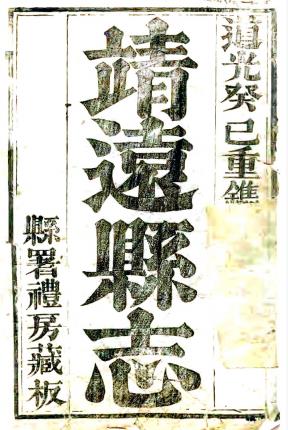 道光癸巳重鐫
靖遠縣志
縣署禮房藏板